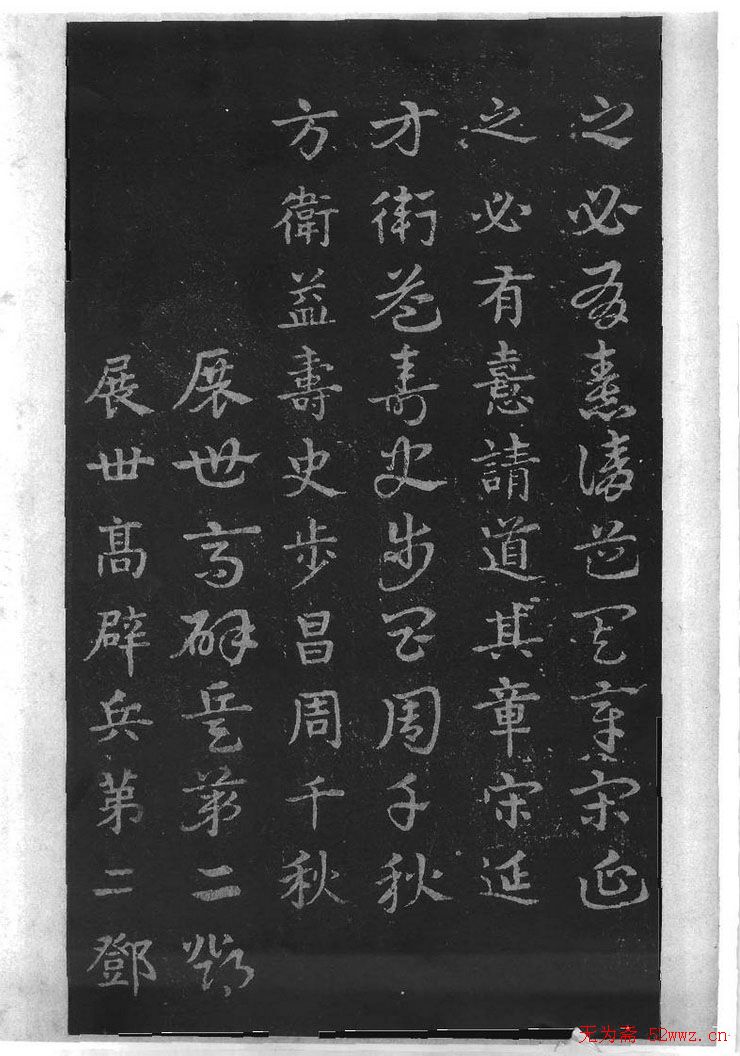 之必有憙請道其章宋延
之必有憙請道其章宋延
方衛益壽史步昌周千秋
方衛益壽史步昌周千秋
展世高辟兵第二鄧
展世髙辟兵第二鄧
无为斋 52wwz.cn